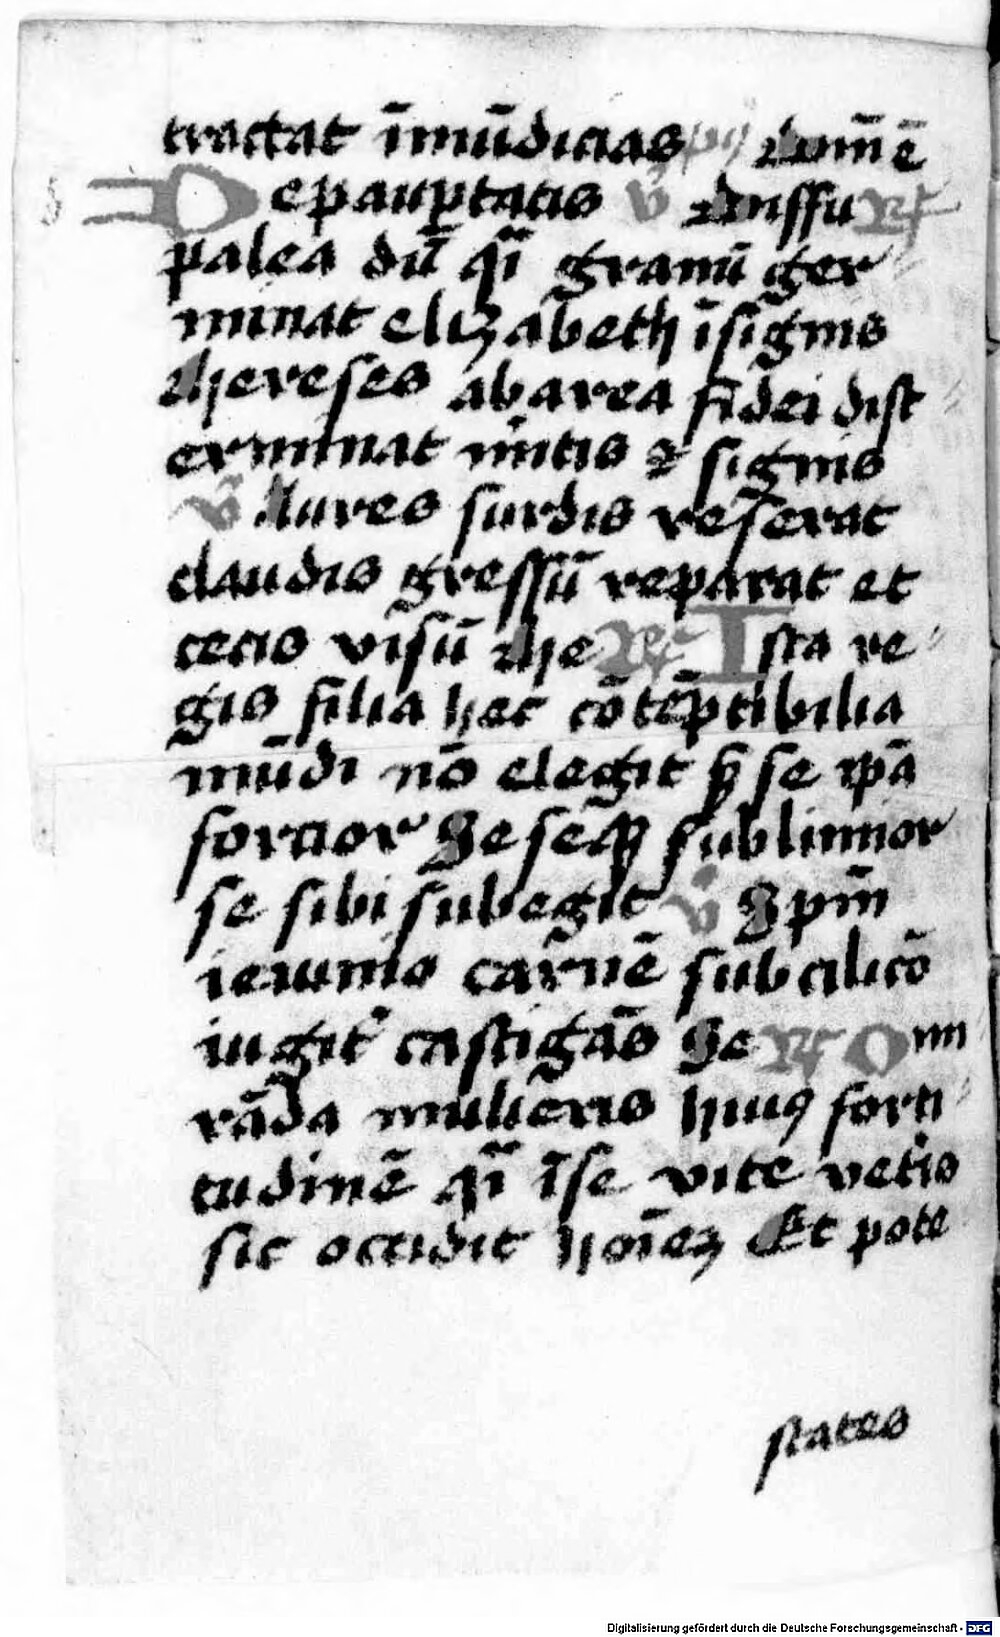 tractat īmūdicias p̄s Domīe
Depaup̱tatis v̄ Diffu R̄
palea dū qī granū ger
minat elizabeth īsignis
hereses ab area fidei dist
erminat mitis ⁊ signis
v̄ Aures surdis reserat
claudis gressū reparat et
cecis visū he R̄ Ista re
gis filia hec cōtēptibilia
mūdi nō elegit ꝙ se ip̄a
forcior Se seq̄ꝫ sublimior
se sibi subegit v̄ Sp̄m
ieiunio carnē sub cilicō
iugit᷑ castigās Se R̄ O mi
rāda mulieris huiꝰ forti
tudinē qī ī se vite vet᷑is
sic occidit hoīeꝫ Et pote
states
Digitalisierung gefördert durch die Deutsche Forschungsgemeinschaft - DFG